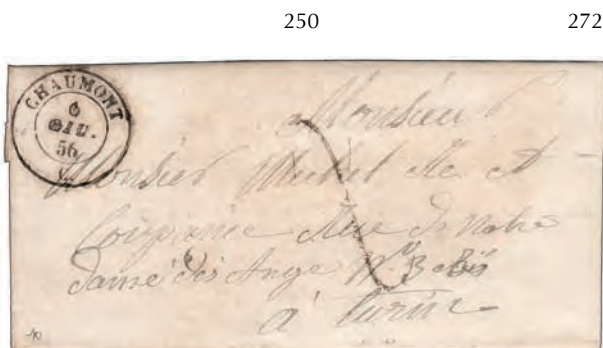 250 272
CHAUMONT
6
GIU.
56
Monsieur
Monsieur Michel
Compagnie Rue de Notre
Dame des Ange N.º 3 bis
à Turin